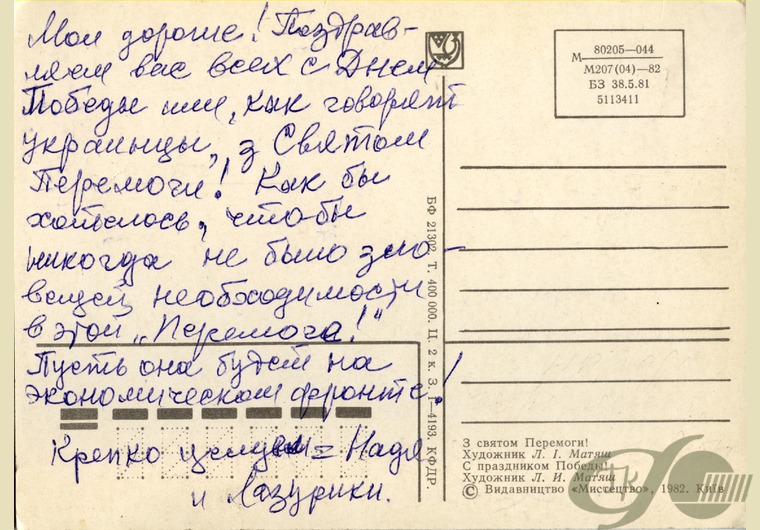 Мои дорогие! Поздрав-
ляем вас всех с Днем
Победы или, как говорят
украинцы, з Святом
Перемоги! Как бы
хотелось, чтобы
никогда не было зло-
вещей необходимости
в этой „Перемога!"
Пусть она будет на
экономическом фронте!
Крепко целуем = Надя
и Лазурики.
80205—044
М
М207(04)—82
БЗ 38.5.81
5113411
БФ 21302. Т. 400 000. Ц. 2 к. З. 1—4193. КФДР.
З святом Перемоги!
Художник Л. І. Матяш
С праздником Победы!
Художник Л. И. Матяш
© Видавництво «Мистецтво», 1982. Київ